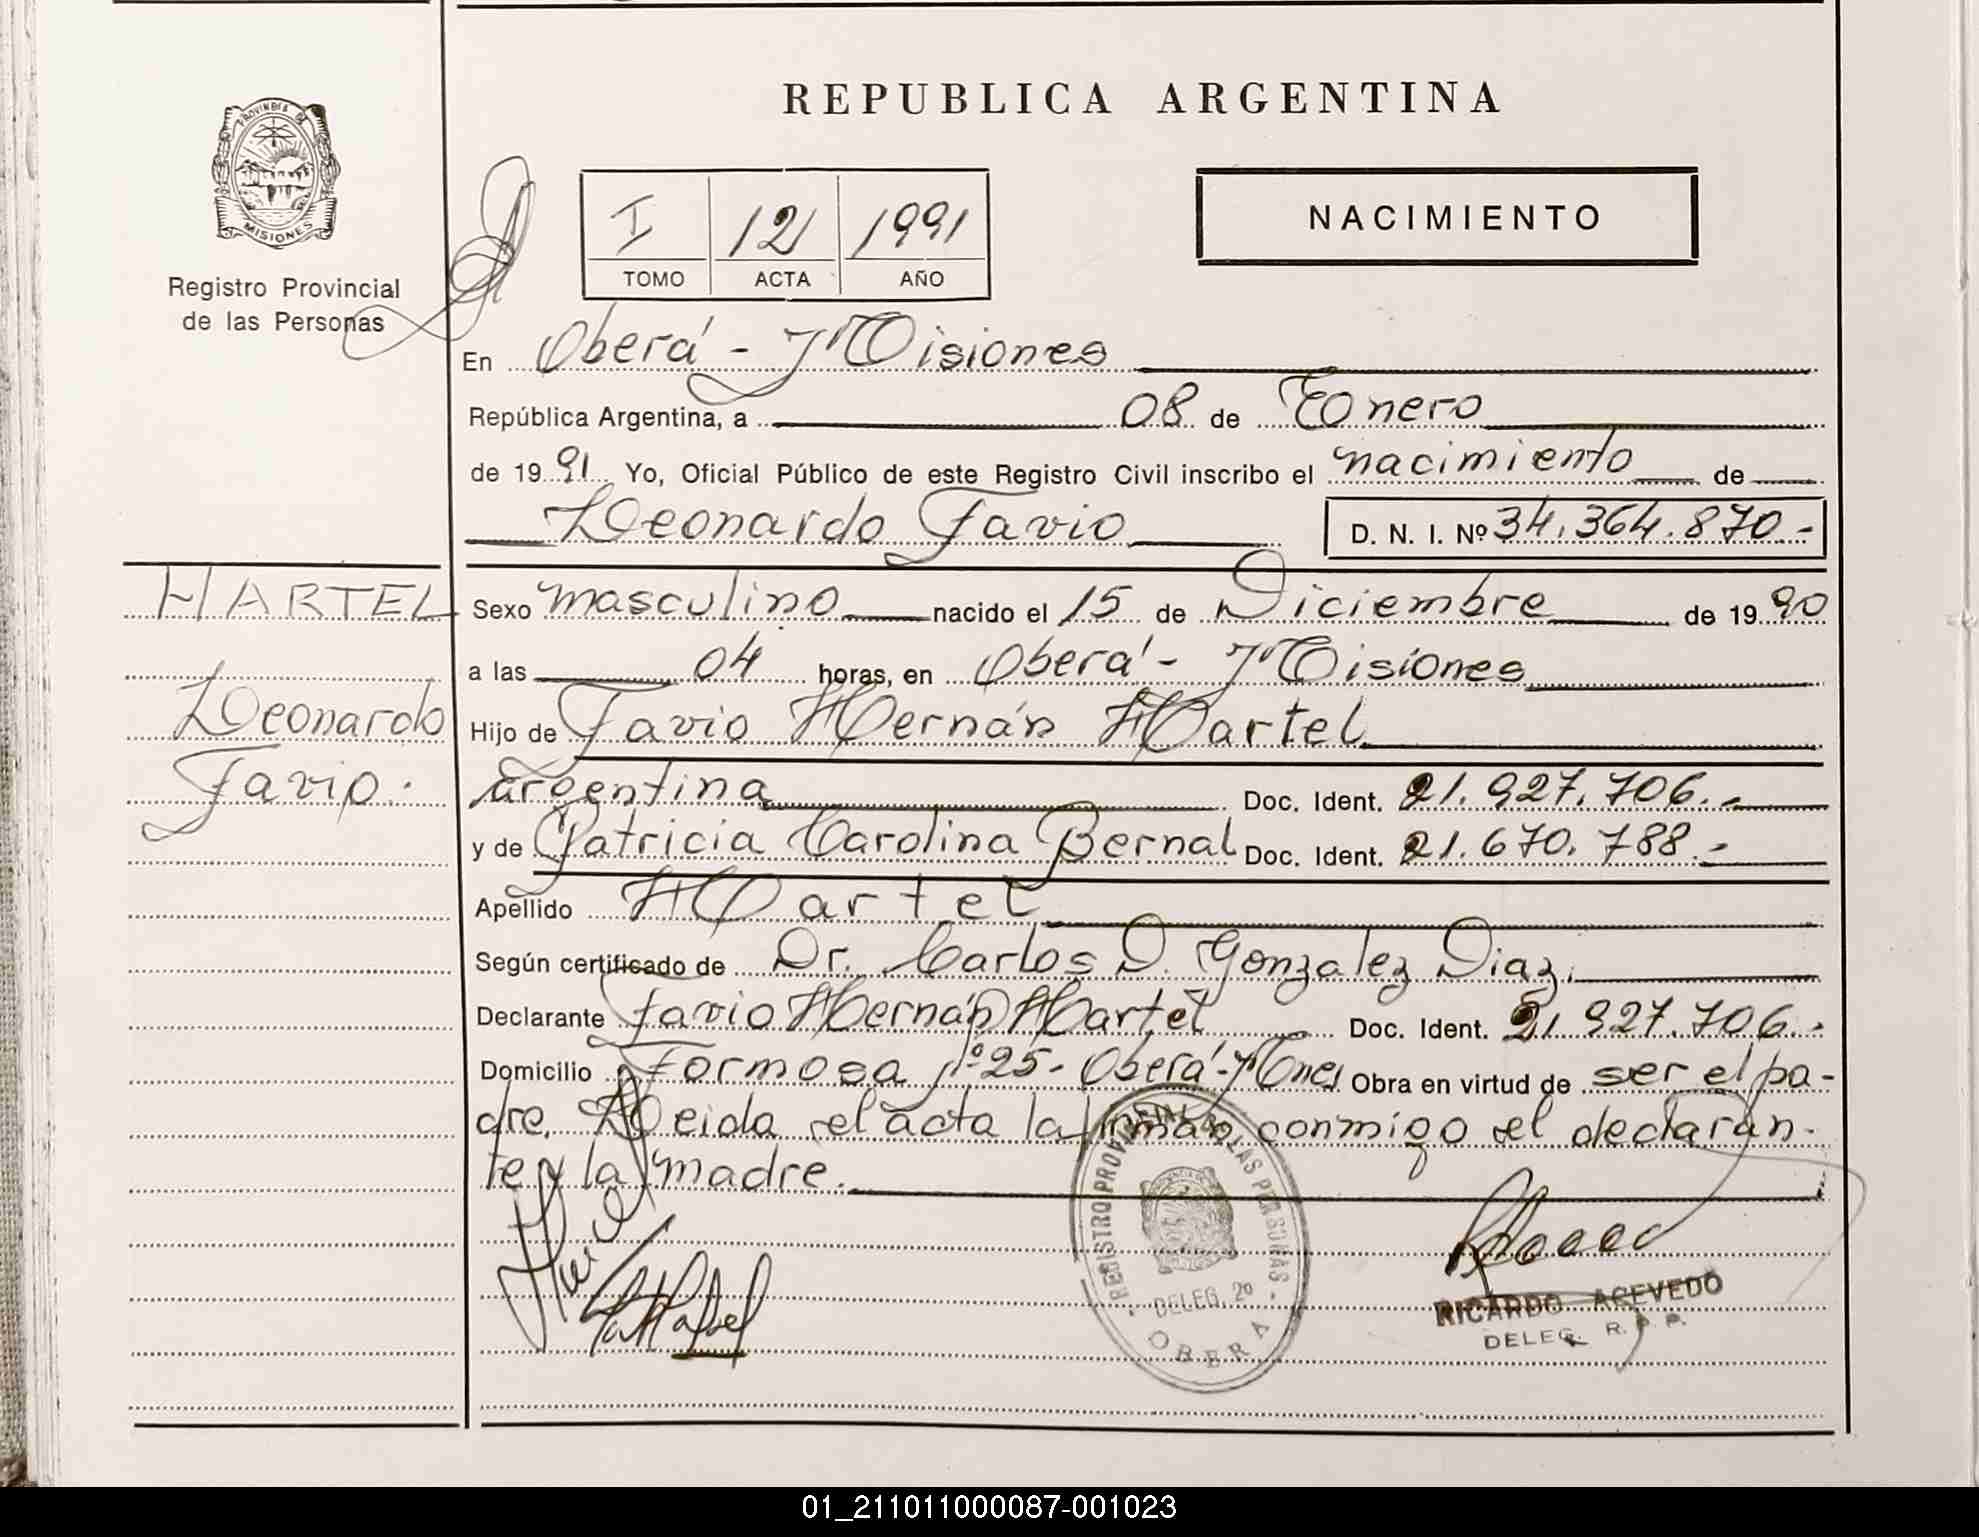 REPUBLICA ARGENTINA
PROVINCIA DE
MISIONES
Registro Provincial
de las Personas
I 121 1991
TOMO ACTA AÑO
NACIMIENTO
En Oberá - Misiones
República Argentina, a 08 de Enero
de 1991 Yo, Oficial Público de este Registro Civil inscribo el nacimiento de
Leonardo Favio D. N. I. Nº 34.364.870.-
HARTEL
Leonardo
Favio.
Sexo masculino nacido el 15 de Diciembre de 1990
a las 04 horas, en Oberá - Misiones
Hijo de Favio Hernán Hartel
argentina Doc. Ident. 21.927.706.-
y de Patricia Carolina Bernal Doc. Ident. 21.670.788.-
Apellido Hartel
Según certificado de Dr. Carlos D. Gonzalez Diaz.
Declarante Favio Hernán Hartel Doc. Ident. 21.927.706.-
Domicilio Formosa Nº 25 - Oberá - Mnes Obra en virtud de ser el pa-
dre. Leida el acta la firman conmigo el declaran-
te y la madre.
REGISTRO PROVINCIAL DE LAS PERSONAS
DELEG. 2º
OBERA
RICARDO ACEVEDO
DELEG. R. P. P.
01_211011000087-001023